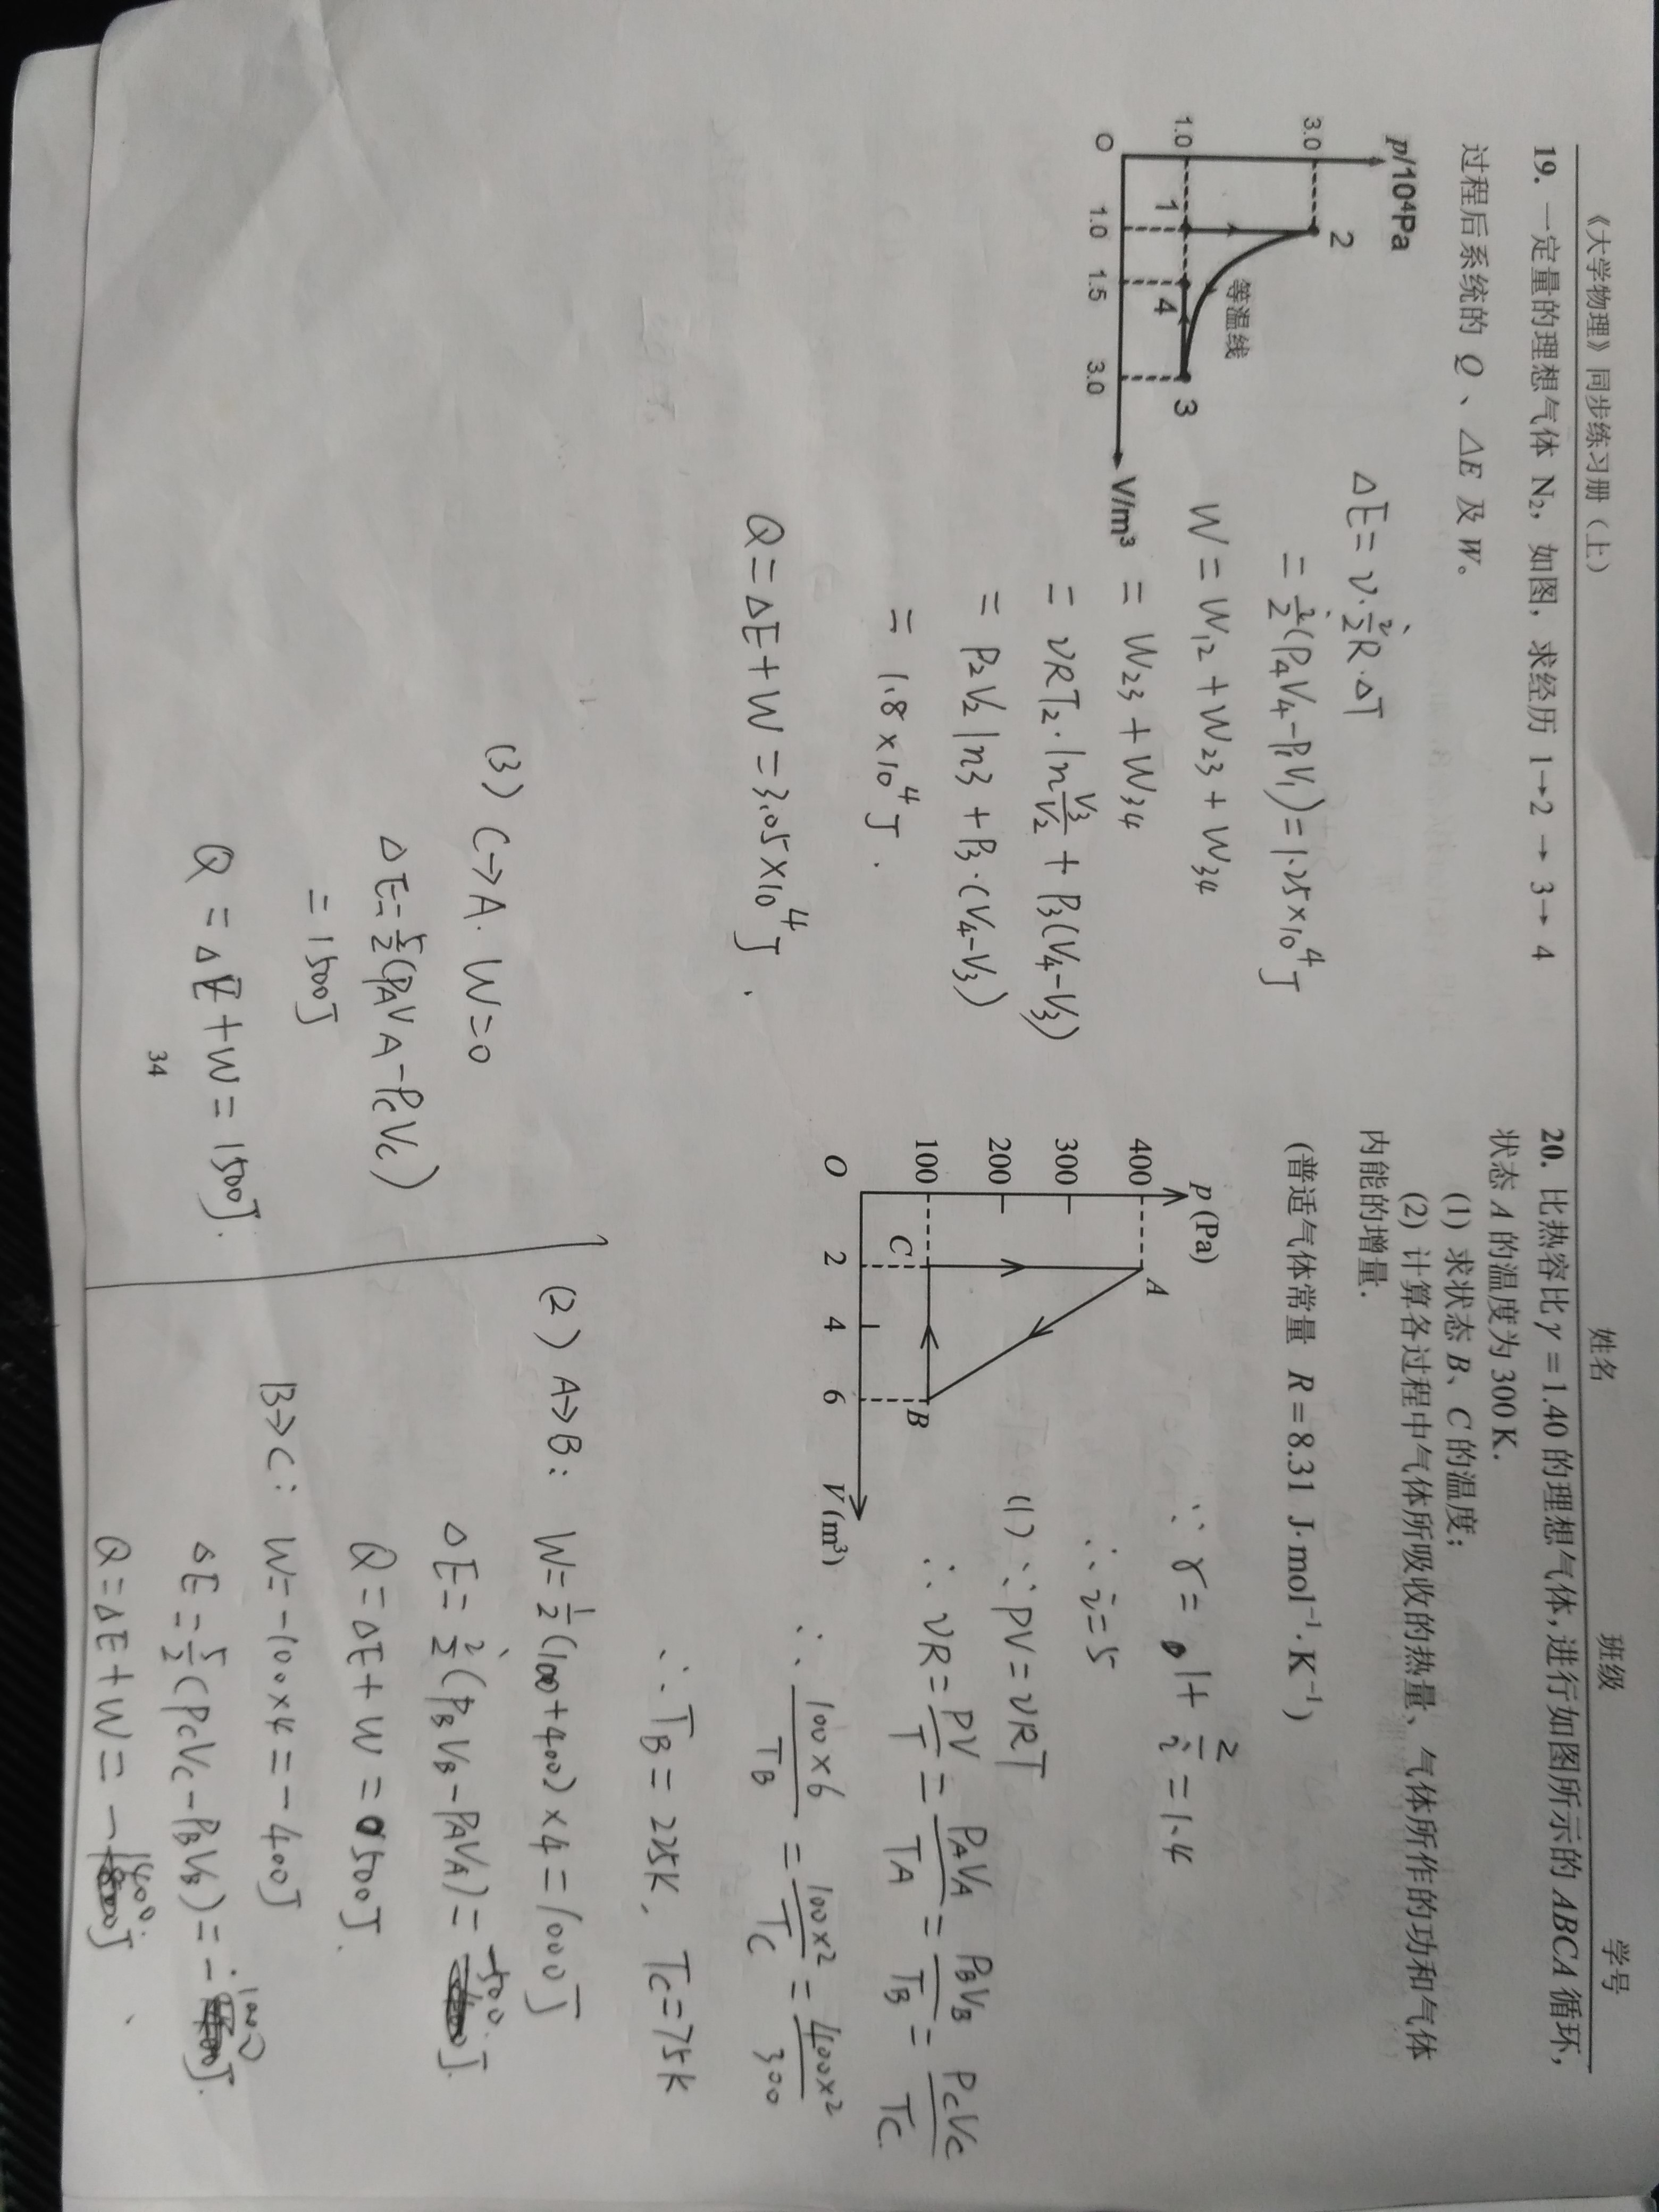 《大学物理》同步练习册（上） 姓名 班级 学号
19. 一定量的理想气体 N₂，如图，求经历 1→2 → 3→ 4
过程后系统的 Q 、ΔE 及 W。
p/10⁴Pa
3.0
2
等温线
1.0
1
4
3
O
1.0
1.5
3.0
V/m³
ΔE = ν·i/2 R·ΔT
= i/2(P₄V₄−P₁V₁)=1.25×10⁴J
W = W₁₂ + W₂₃ + W₃₄
= W₂₃ + W₃₄
= νRT₂·ln V₃/V₂ + P₃(V₄−V₃)
= P₂V₂ ln3 + P₃·(V₄−V₃)
= 1.8×10⁴J.
Q = ΔE + W = 3.05×10⁴J.
(3) C→A. W=0
ΔE=5/2(PAVA−PcVc)
= 1500J
Q = ΔE+W = 1500J.
34
20. 比热容比γ＝1.40 的理想气体，进行如图所示的 ABCA 循环，
状态 A 的温度为 300 K．
(1) 求状态 B、C 的温度；
(2) 计算各过程中气体所吸收的热量、气体所作的功和气体
内能的增量．
(普适气体常量 R＝8.31 J·mol⁻¹·K⁻¹)
p (Pa)
400
300
200
100
A
B
C
O
2
4
6
V (m³)
∵ γ = 1+ 2/i = 1.4
∴ i=5
(1) ∵ PV=νRT
∴ νR= PV/T = PAVA/TA = PBVB/TB = PcVc/Tc
∴ 100×6/TB = 100×2/Tc = 400×2/300
∴ TB = 225K, Tc=75K
(2) A→B: W=1/2(100+400)×4=1000J
ΔE= i/2(PBVB−PAVA)= −500J.
Q = ΔE+W = 500J.
B→C: W=−100×4=−400J
ΔE=5/2(PcVc−PBVB)=−1000J.
Q=ΔE+W= −1400J.